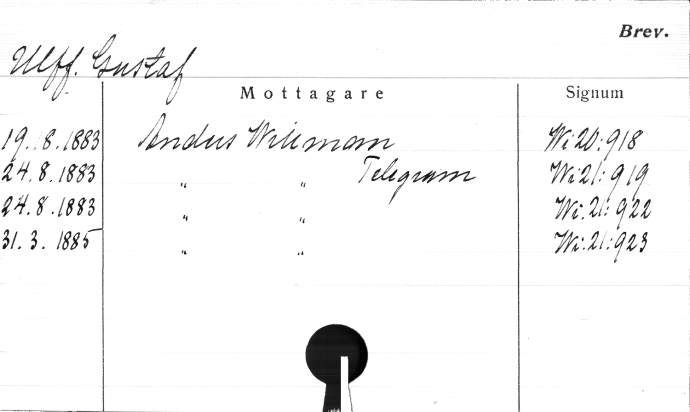 Brev.
Ulff. Gustaf
Mottagare Signum
19.8.1883 Anders Willman Wi 20:918
24.8.1883 " " Telegram Wi 21:919
24.8.1883 " " Wi.21:922
31.3.1885 " " Wi.21:923